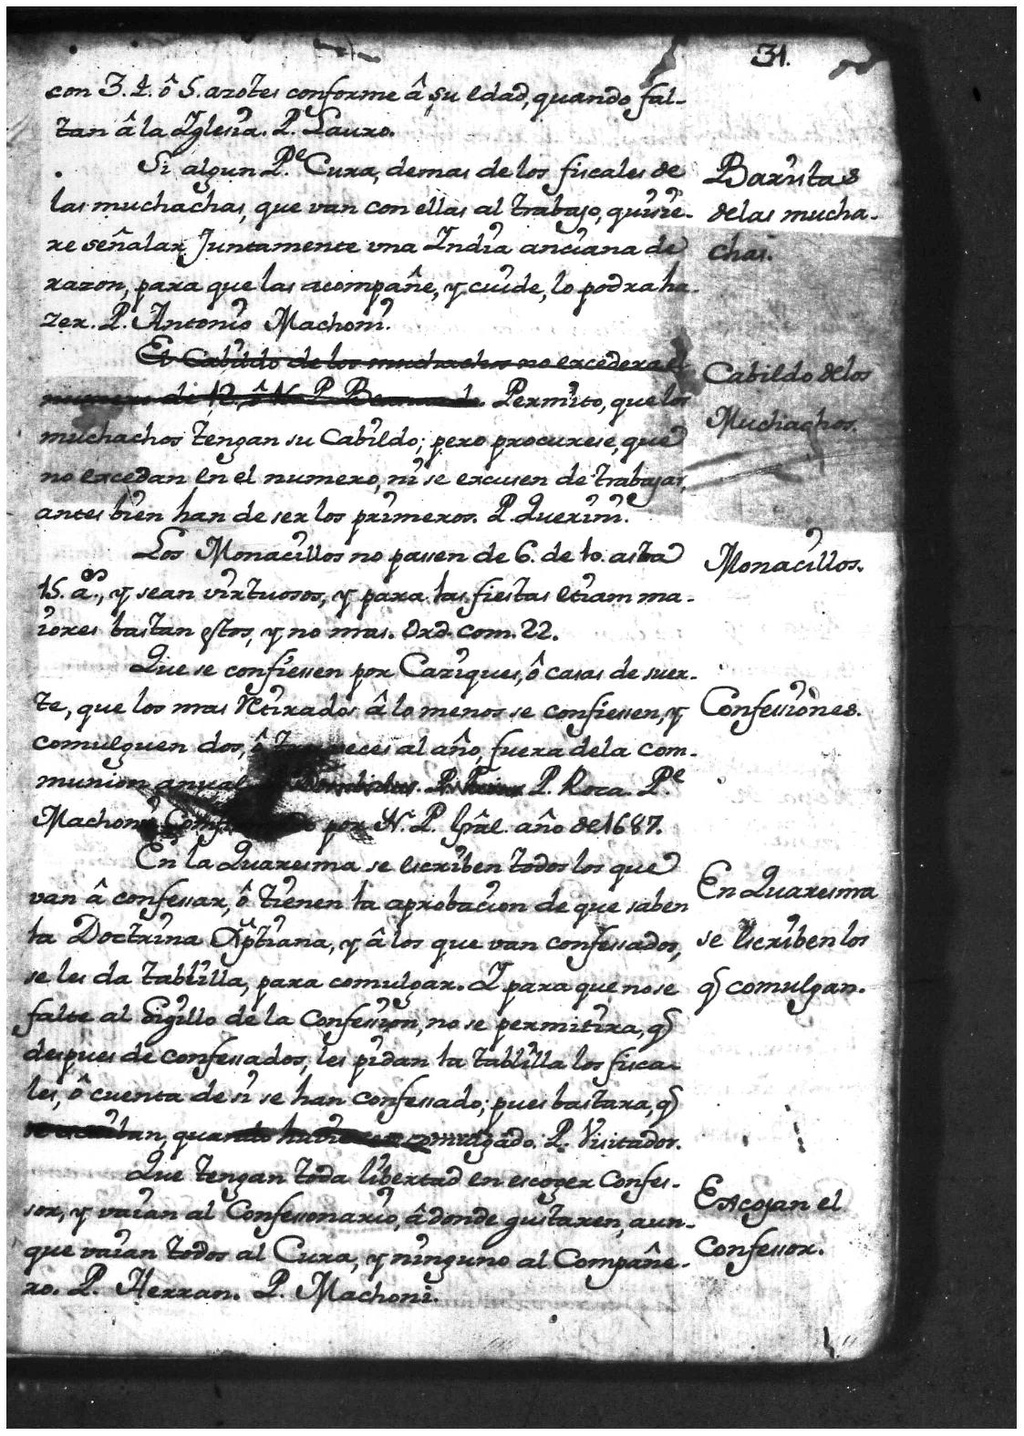 31.
con 3. 4. ô 5. azotes conforme â su edad, quando fal-
tan â la Iglesia. P. Lauro.
Si algun Pe. Cura, demas de los fiscales de
las muchachas, que van con ellas al trabajo, quisie-
re señalar Juntamente una India anciana de
razon, para que las acompañe, y cuide, lo podra ha-
zer. P. Antonio Machoni.
Baritas
de las mucha-
chas.
El Cabildo de los muchachos no excedera el
numero de 12. ô P. Permito, que los
muchachos tengan su Cabildo; pero procurese, que
no excedan en el numero, ni se excusen de trabajar,
antes bien han de ser los primeros. P. Querini.
Cabildo de los
Muchachos.
Los Monacillos no passen de 6. de 10. asta
15. as., y sean virtuosos, y para las fiestas etiam ma-
iores bastan estos, y no mas. Ord. com. 22.
Monacillos.
Que se confiessen por Caziques, ô casas de suer-
te, que los mas retirados â lo menos se confiessen, y
comulguen dos, ô tres veces al año, fuera de la com-
munion anual P. Roca. Pe.
Machoni por N. P. Gral. año de 1687.
Confessiones.
En la Quaresma se escriben todos los que
van â confessar, ô tienen la aprobacion de que saben
la Doctrina Xptiana, y â los que van confessados,
se les da tablilla, para comulgar. I para que no se
falte al Sigillo de la Confession, no se permitira, q
despues de confessados, les pidan la tablilla los fisca-
les, ô cuenta de si se han confessado; pues bastara, q
se escriban, quando huvieren comulgado. P. Visitador.
En Quaresma
se escriben los
q comulgan.
Que tengan toda libertad en escoger Confes-
sor, y vaian al Confessonario, â donde gustaren, aun-
que vaian todos al Cura, y ninguno al Compañe-
ro. P. Herran. P. Machoni.
Escojan el
Confessor.